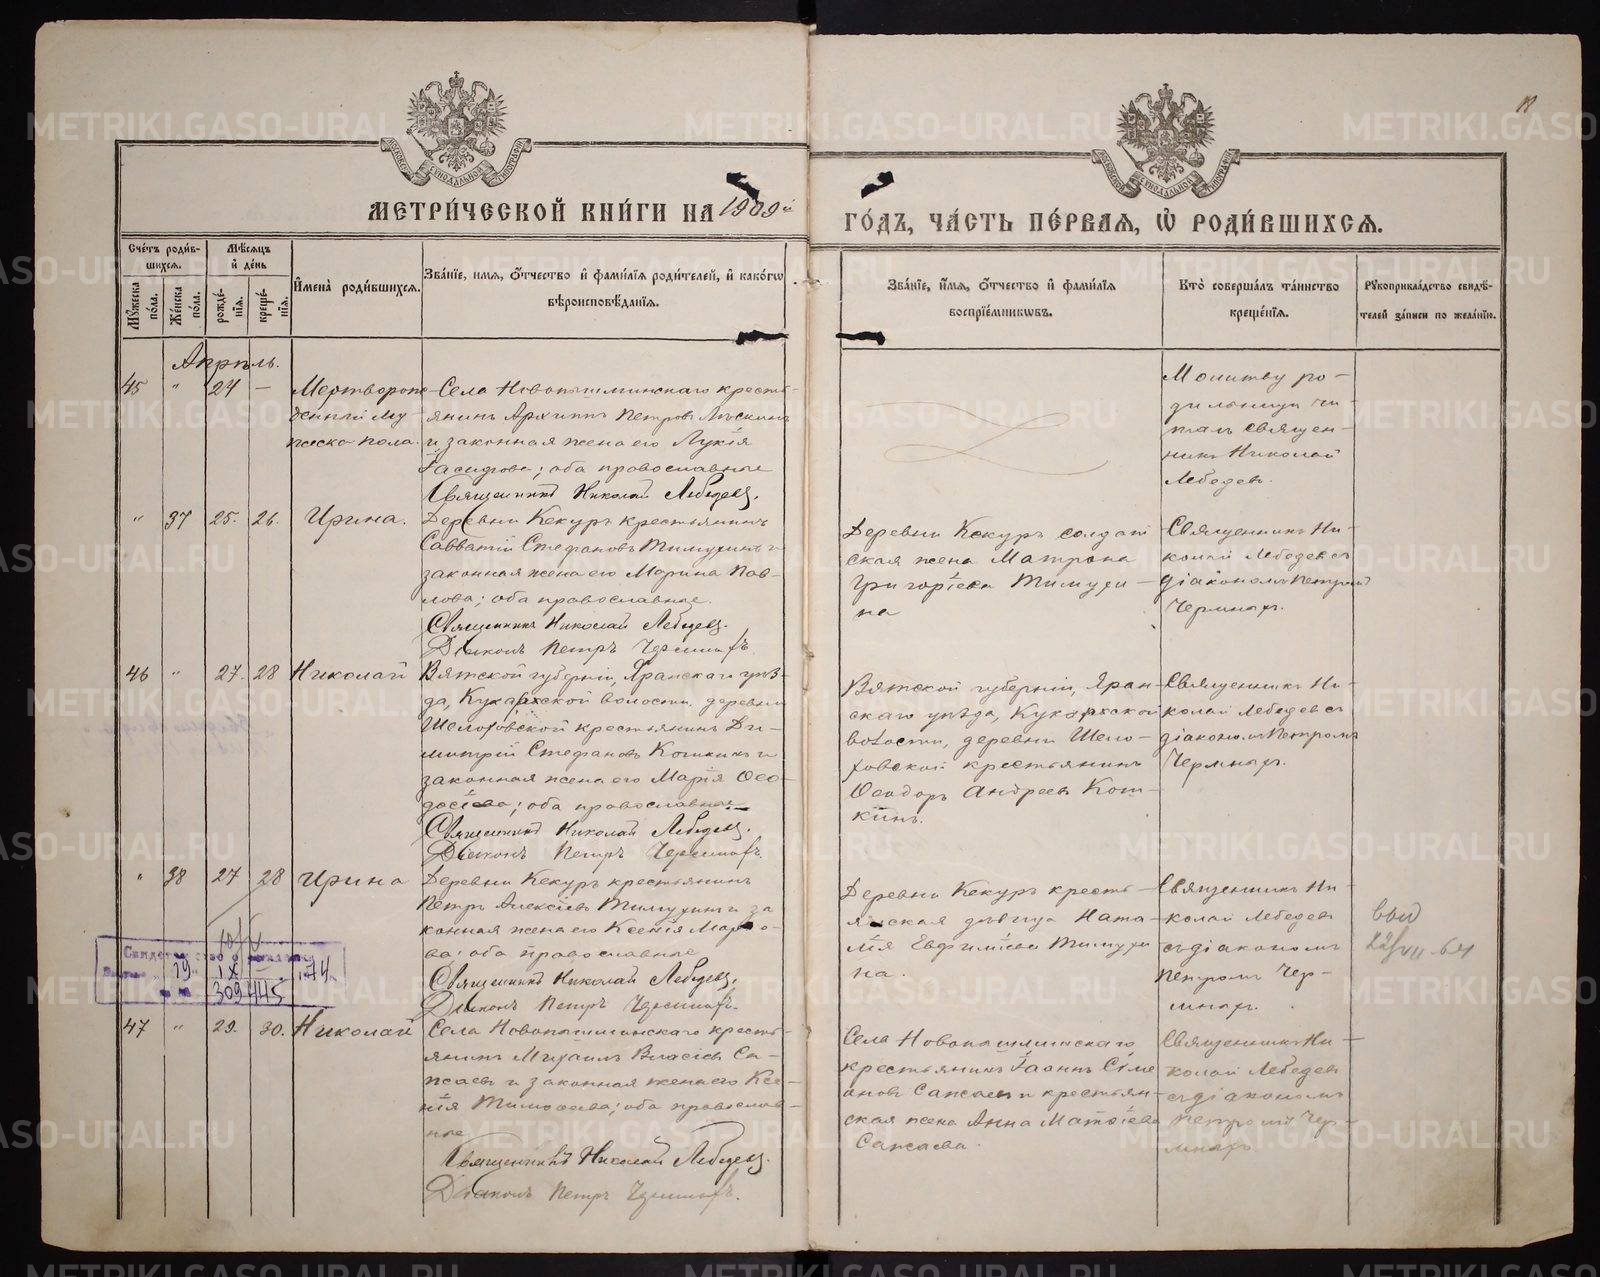 МЕТРИ́ЧЕСКОЙ КНИ́ГИ НА 1909й ГО́ДЪ, ЧА́СТЬ ПЕ́РВАЯ, Ѡ҆ РОДИ́ВШИХСѦ.
Сче́тъ роди́в-
шихся.
Мѣ́сяцъ
и҆ де́нь
Мꙋ́жеска по́ла.
Же́нска по́ла.
рожде́-
нїѧ.
креще́-
нїѧ.
И҆мена̀ роди́вшихсѧ.
Зва́нїе, и҆мѧ, ѻ҆́тчество и҆ фами́лїѧ роди́телей, и҆ како́гѡ
вѣроисповѣ́данїѧ.
Зва́нїе, и҆́мѧ, ѻ҆́тчество и҆ фами́лїѧ
воспрїе́мникѡвъ.
Кто̀ соверша́лъ та́инство
креще́нїѧ.
Рꙋкоприкла́дство свидѣ́-
телей за́писи по жела́нїю.
Апрѣль.
45 " 24 —
Мертворож-
денный му-
жеска пола.
Села Новопышминскаго кресть-
янинъ Архиппъ Петровъ
и законная жена его Лукія
оба православные
Священникъ Николай Лебедевъ.
Молитву ро-
дильницы чи-
талъ Священ-
никъ Николай
Лебедевъ.
" 37 25. 26. Ирина.
Деревни Кекуръ крестьянинъ
Савватій Стефановъ Тимухинъ и
законная жена его Марина Пав-
лова; оба православные.
Священникъ Николай Лебедевъ.
Діаконъ Петръ
Деревни Кекуръ солдат-
ская жена Матрона
Григоріева Тимухи-
на
Священникъ Ни-
колай Лебедевъ съ
діакономъ Петромъ
46 " 27. 28 Николай
Вятской губерніи, Яранскаго уѣз-
да, Кукарской волости, деревни
Шелоховской крестьянинъ Ди-
митрій Стефановъ Кошкинъ и
законная жена его Марія Ѳео-
досіева; оба православные
Священникъ Николай Лебедевъ.
Діаконъ Петръ
Вятской губерніи, Яран-
скаго уѣзда, Кукарской
волости, деревни Шело-
ховской крестьянинъ
Ѳеодоръ Андреевъ Кош-
кинъ.
Священникъ Ни-
колай Лебедевъ съ
діакономъ Петромъ
" 38 27 28 Ирина
Деревни Кекуръ крестьянинъ
Петръ Алексіевъ Тимухинъ и за
конная жена его Ксенія Марко-
ва; оба православные
Священникъ Николай Лебедевъ.
Діаконъ Петръ
Деревни Кекуръ кресть-
янская дѣвица Ната-
лія Евфиміева Тимухи
на.
Священникъ Ни-
колай Лебедевъ
съ діакономъ
Петромъ
Свидетельство о рождении
29 IX 74
309445
47 " 29. 30. Николай
Села Новопышминскаго кресть-
янинъ Михаилъ Власіевъ Са-
жаевъ и законная жена его Ксе-
нія Тимоѳеева; оба православ-
ные
Священникъ Николай Лебедевъ.
Діаконъ Петръ
Села Новопышминскаго
крестьянинъ Іоаннъ Симе
оновъ Сажаевъ и крестьян-
ская жена Анна Матѳіева
Сажаева.
Священникъ Ни-
колай Лебедевъ
съ діакономъ
Петромъ
METRIKI.GASO-URAL.RU